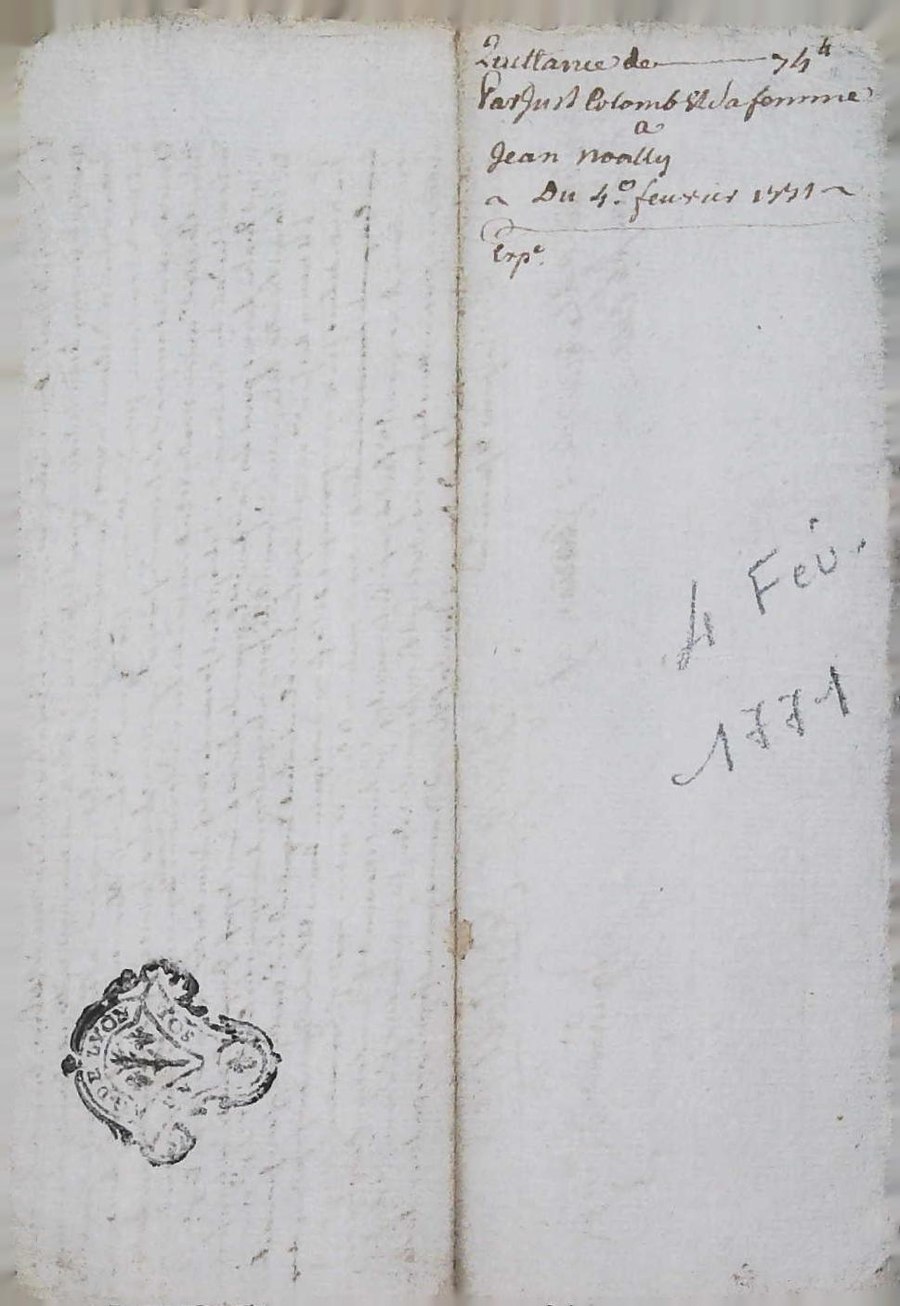 Quittance de 74#
Par Just Colomb & sa femme
a
Jean noally
Du 4e feuvrier 1771
Exp.e
4 Fev.
1771
DE LYON
10S